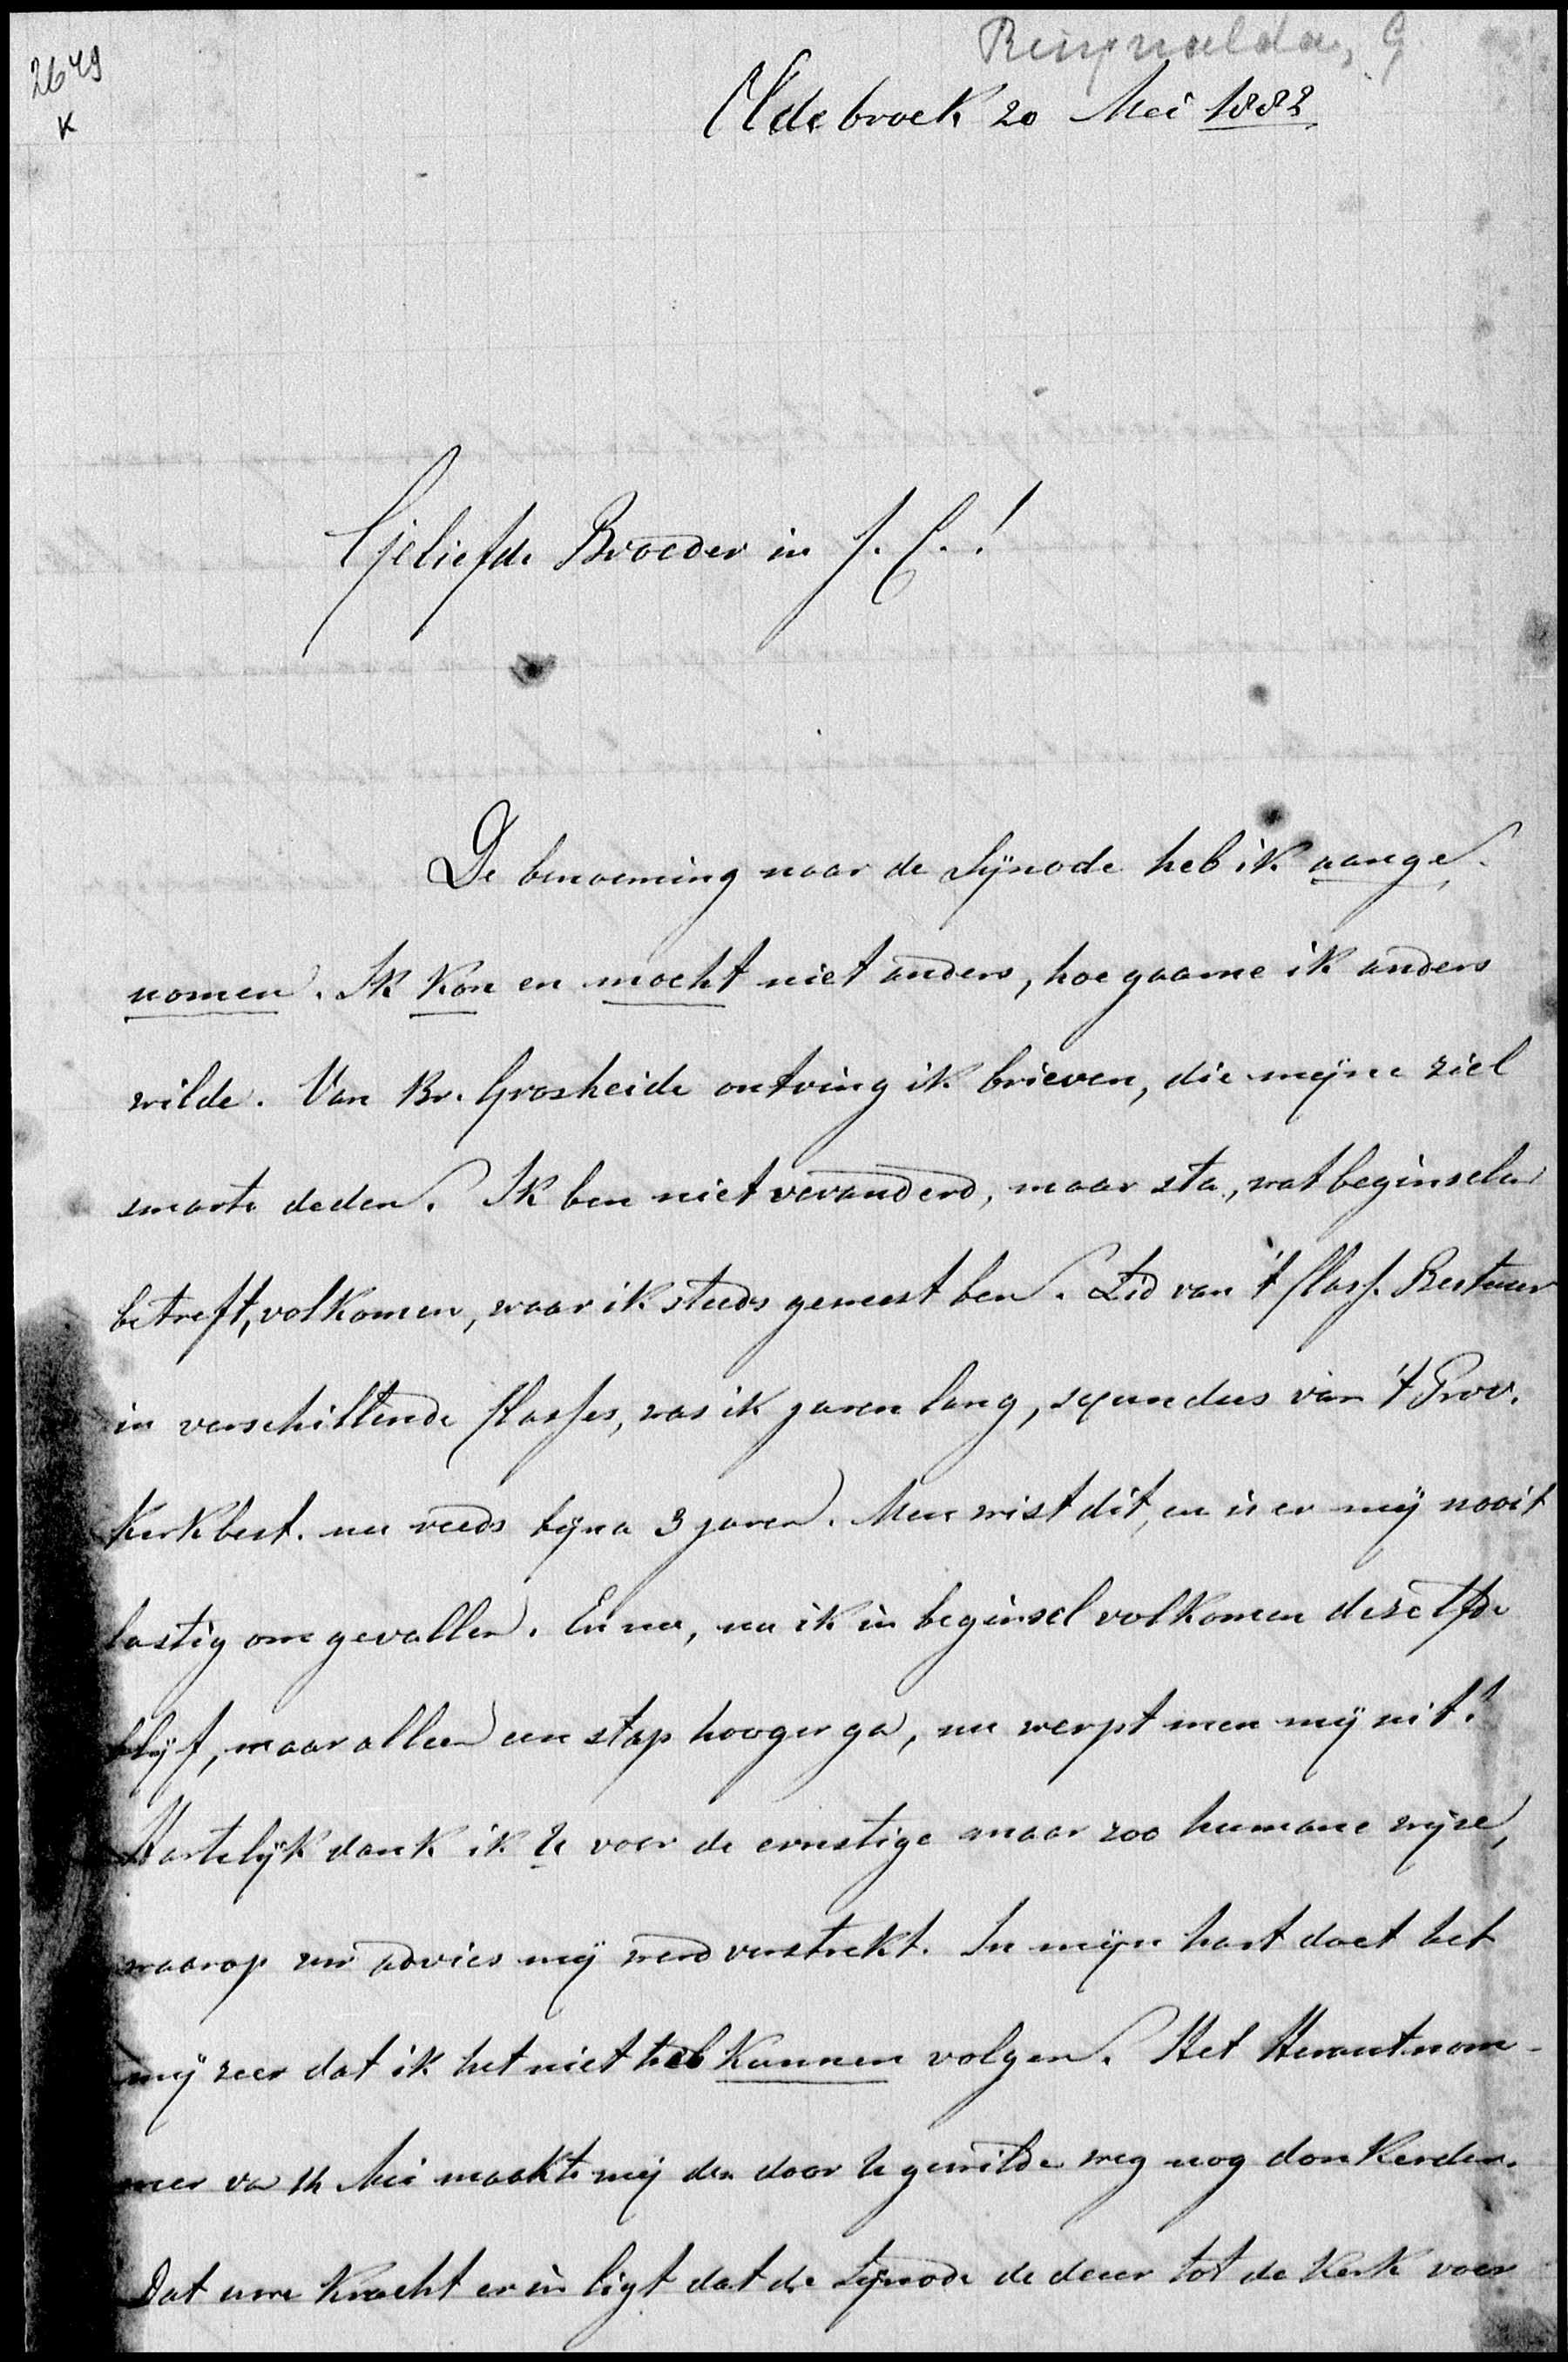 Ringnalda, G.
2649
K
Oldebroek 20 Mei 1882
Geliefde Broeder in J. C.!
De benoeming naar de Synode heb ik aange-
nomen. Ik kon en mocht niet anders, hoe gaarne ik anders
wilde. Van Br. Grosheide ontving ik brieven, die mijne ziel
smarte deden. Ik ben niet veranderd, maar sta, wat beginselen
betreft, volkomen, waar ik steeds geweest ben. Lid van 't Class. Bestuur
in verschillende Classes, was ik jaren lang, secundus van 't Prov.
Kerkbest. nu reeds bijna 3 jaren. Men wist dit, en is er mij nooit
lastig om gevallen. En nu, nu ik in beginsel volkomen dezelfde
blijf, maar alleen een stap hooger ga, nu werpt men mij uit!
Hartelijk dank ik U voor de ernstige maar zoo humane wijze,
waarop uw advies mij werd verstrekt. In mijn hart doet het
mij zeer dat ik het niet heb kunnen volgen. Het Herautnom-
mer van 14 Mei maakte mij den door U gewilde weg nog donkerder.
Dat uwe kracht er in ligt dat de Synode de deur tot de Kerk voor